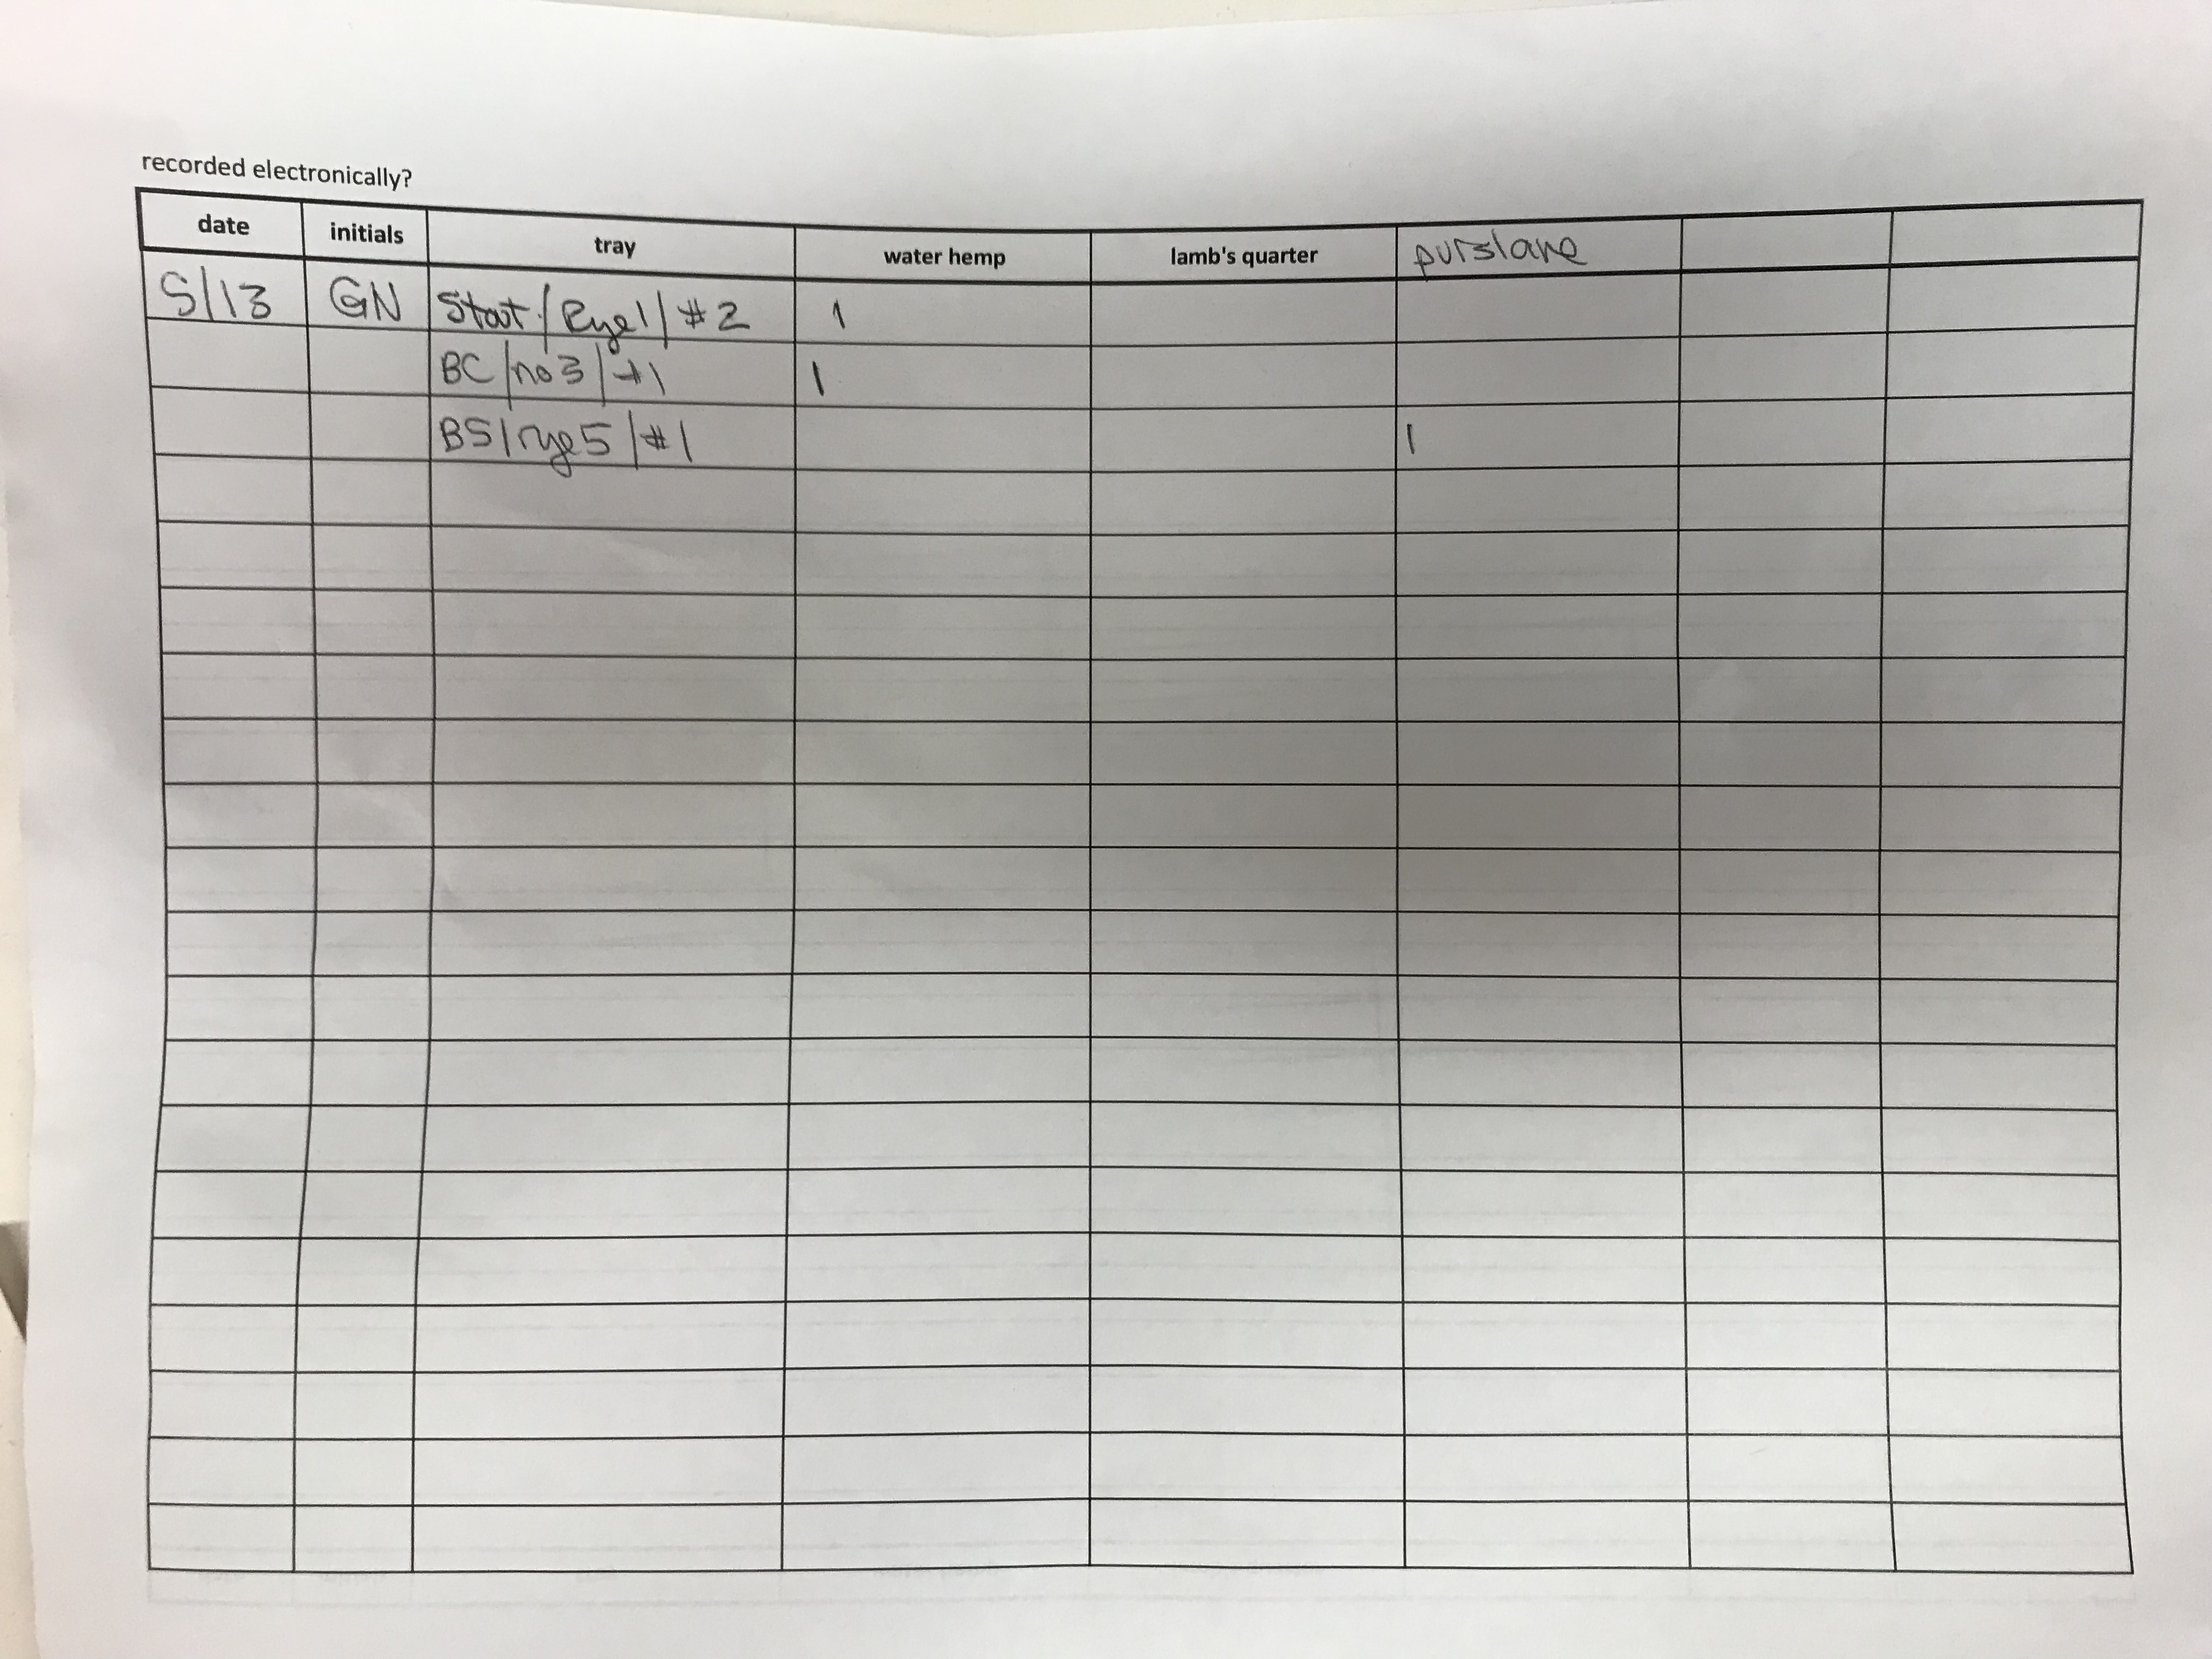 recorded electronically?
date initials tray water hemp lamb's quarter purslane
5/13 GN Stout/Rye1/#2 1
BC/no3/#1 1
BS/rye5/#1 1